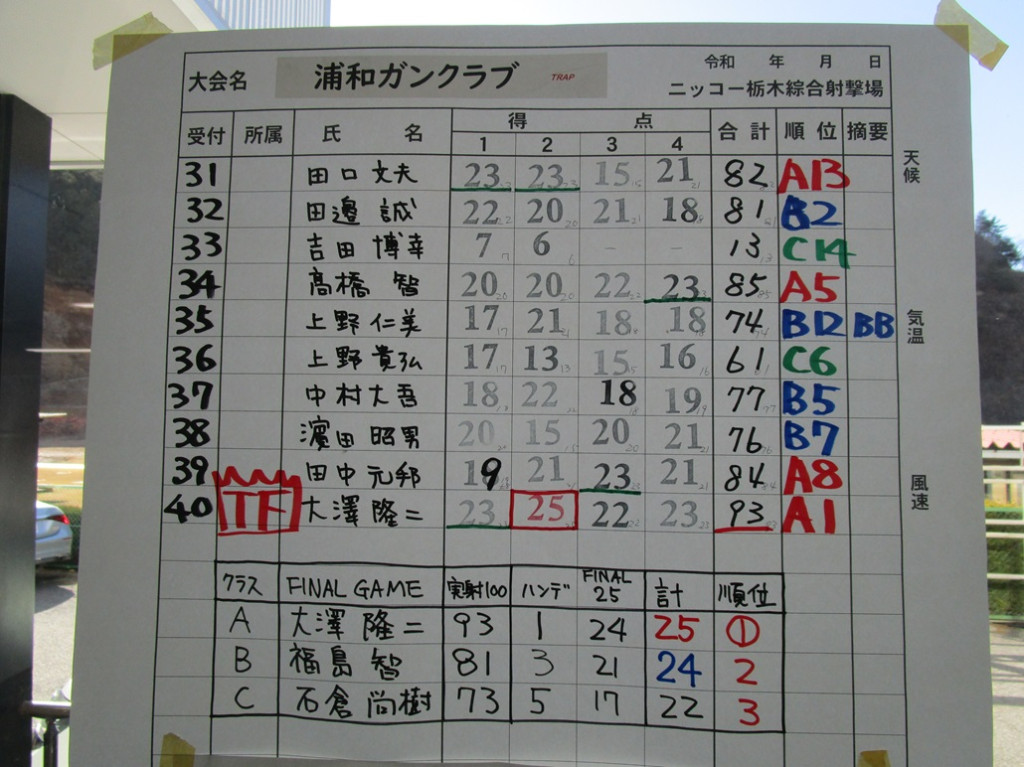 令和 年 月 日
大会名 浦和ガンクラブ TRAP
ニッコー栃木綜合射撃場
受付 所属 氏 名 得 点 合計 順位 摘要
1 2 3 4
天候
31 田口文夫 23 23 15 21 82 A13
32 田邉 誠 22 20 21 18 81 B2
33 吉田博幸 7 6 - - 13 C14
34 髙橋 智 20 20 22 23 85 A5
気温
35 上野仁美 17 21 18 18 74 B12 BB
36 上野貴弘 17 13 15 16 61 C6
37 中村大吾 18 22 18 19 77 B5
38 濱田昭男 20 15 20 21 76 B7
39 田中元邦 19 21 23 21 84 A8
風速
40 TF 大澤隆二 23 25 22 23 93 A1
クラス FINAL GAME 実射100 ハンデ FINAL 25 計 順位
A 大澤隆二 93 1 24 25 ①
B 福島 智 81 3 21 24 2
C 石倉尚樹 73 5 17 22 3